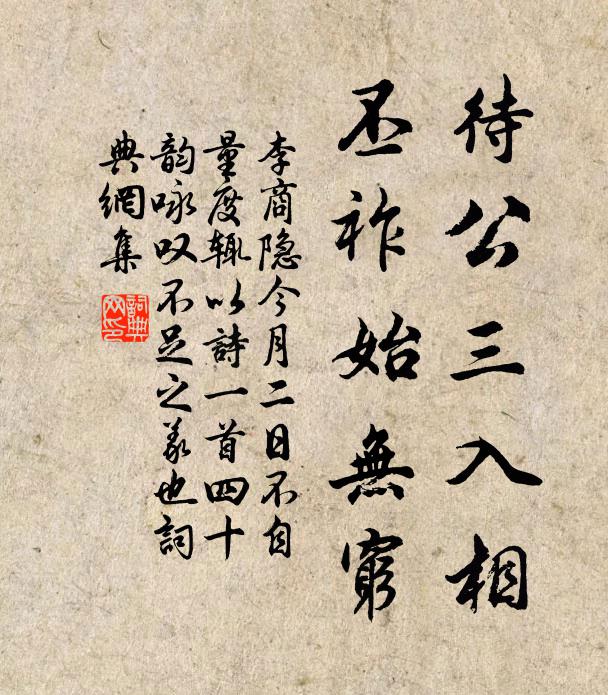 待公三入相
丕祚始無窮
李商隐今月二日不自
量度辄以詩一首四十
韵咏叹不足之义也詞
典網集
詞典
网印